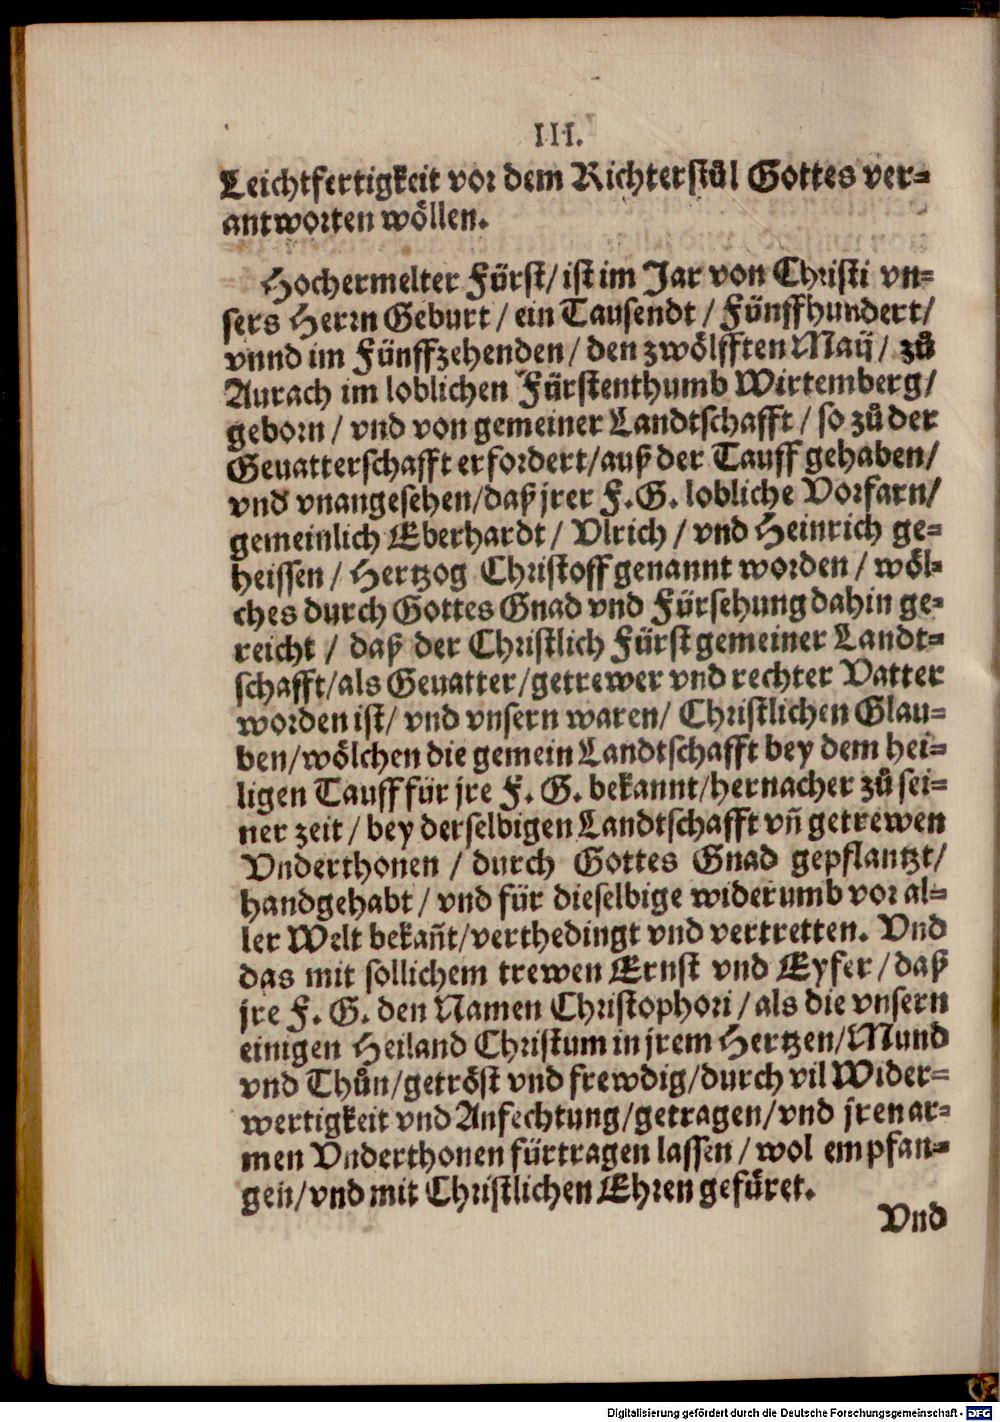 III.
Leichtfertigkeit vor dem Richterstůl Gottes ver-
antworten wöllen.
Hochermelter Fürst/ ist im Jar von Christi vn-
sers Herrn Geburt / ein Tausendt / Fünffhundert/
vnnd im Fünffzehenden / den zwölfften Maij / zů
Aurach im loblichen Fürstenthumb Wirtemberg/
geborn / vnd von gemeiner Landtschafft / so zů der
Geuatterschafft erfordert/auß der Tauff gehaben/
vnd vnangesehen/daß jrer F. G. lobliche Vorfarn/
gemeinlich Eberhardt / Vlrich / vnd Heinrich ge-
heissen / Hertzog Christoff genannt worden / wöl-
ches durch Gottes Gnad vnd Fürsehung dahin ge-
reicht / daß der Christlich Fürst gemeiner Landt-
schafft/als Geuatter/getrewer vnd rechter Vatter
worden ist/ vnd vnsern waren/ Christlichen Glau-
ben/wölchen die gemein Landtschafft bey dem hei-
ligen Tauff für jre F. G. bekannt/hernacher zů sei-
ner zeit / bey derselbigen Landtschafft vñ getrewen
Vnderthonen / durch Gottes Gnad gepflantzt/
handgehabt / vnd für dieselbige widerumb vor al-
ler Welt bekañt/verthedingt vnd vertretten. Vnd
das mit sollichem trewen Ernst vnd Eyfer / daß
jre F. G. den Namen Christophori / als die vnsern
einigen Heiland Christum in jrem Hertzen/Mund
vnd Thůn/getröst vnd frewdig/durch vil Wider-
wertigkeit vnd Anfechtung/getragen/vnd jren ar-
men Vnderthonen fürtragen lassen / wol empfan-
gen/vnd mit Christlichen Ehren gefüret.
Vnd
Digitalisierung gefördert durch die Deutsche Forschungsgemeinschaft - DFG